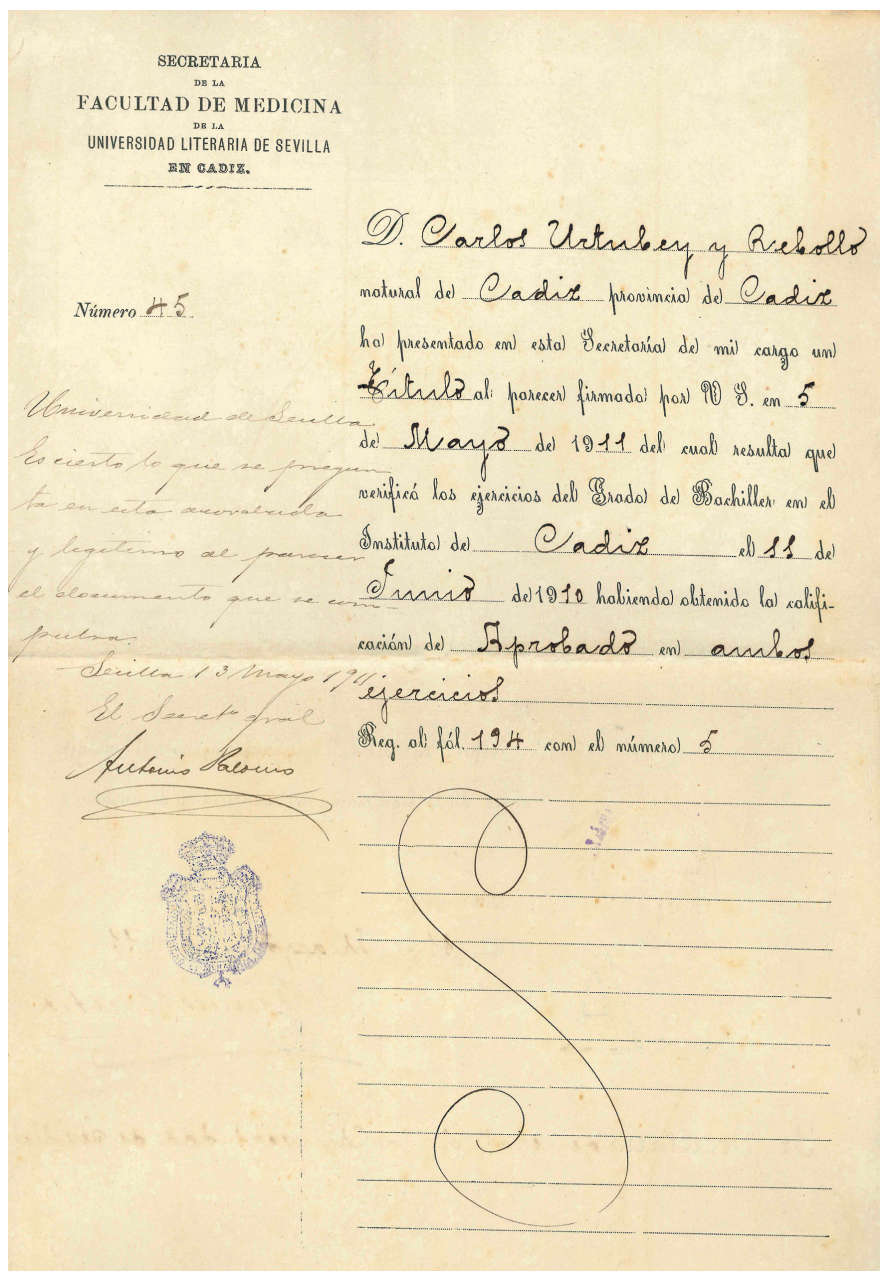 SECRETARIA
DE LA
FACULTAD DE MEDICINA
DE LA
UNIVERSIDAD LITERARIA DE SEVILLA
EN CADIZ.
Número 45
Universidad de Sevilla
Es cierto lo que se pregun-
ta en esta acordada
y legítimo al parecer
el documento que se com-
pulsa.
Sevilla 13 Mayo 1911
El Secret. gral
Antonio
D. Carlos Urtubey y Rebollo
natural de Cadiz provincia de Cadiz
ha presentado en esta Secretaría de mi cargo un
Título al parecer firmado por V S. en 5
de Mayo de 1911 del cual resulta que
verificó los ejercicios del Grado de Bachiller en el
Instituto de Cadiz el 11 de
Junio de 1910 habiendo obtenido la califi-
cación de Aprobado en ambos
ejercicios
Reg. al fól. 194 con el número 5